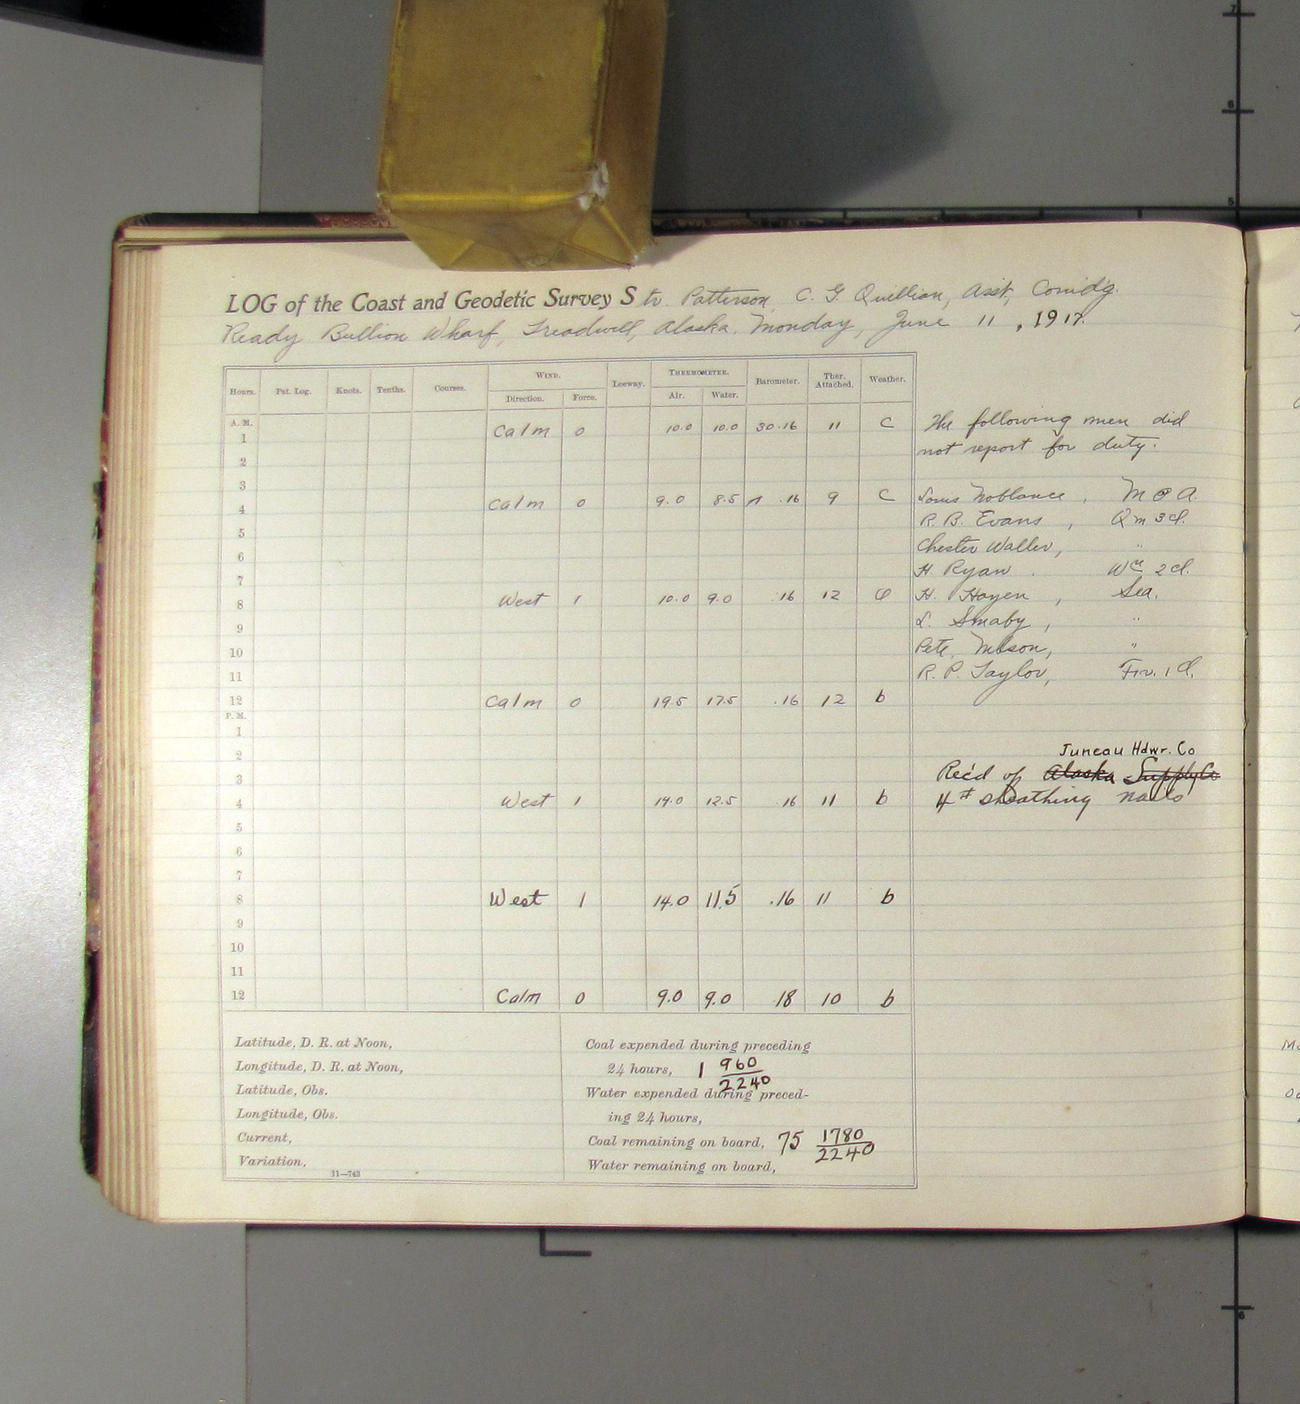 LOG of the Coast and Geodetic Survey Str Patterson, C. G. Quillian, Asst, Comd'g.
Ready Bullion Wharf, Treadwell, Alaska. Monday, June 11, 1917.
Hours. Pat. Log. Knots. Tenths. Courses. WIND. Leeway. THERMOMETER. Barometer. Ther. Attached. Weather.
Direction. Force. Air. Water.
A. M.
1 Calm 0 10.0 10.0 30.16 11 C
2
3
4 Calm 0 9.0 8.5 .16 9 C
5
6
7
8 West 1 10.0 9.0 .16 12
9
10
11
12 Calm 0 19.5 17.5 .16 12 b
P. M.
1
2
3
4 West 1 14.0 12.5 .16 11 b
5
6
7
8 West 1 14.0 11.5 .16 11 b
9
10
11
12 Calm 0 9.0 9.0 .18 10 b
The following men did
not report for duty.
Louis , M a A.
R. B. Evans , Qm 3 cl.
Chester Waller, "
H. Ryan . 2 cl.
H. Hayen , Sea.
L. Smaby , "
Pete "
R. P. Taylor, Fir. 1 Cl.
Juneau Hdwr. Co
Rec'd of Alaska Supply Co
4# sheathing nails
Latitude, D. R. at Noon,
Longitude, D. R. at Noon,
Latitude, Obs.
Longitude, Obs.
Current,
Variation,
11—743
Coal expended during preceding
24 hours, 1 960/2240
Water expended during preced-
ing 24 hours,
Coal remaining on board, 75 1780/2240
Water remaining on board,